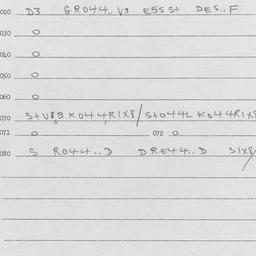 020 D3 GR044.. V3 E55 St DES.. F
030 0
040 0
050 0
060 0
070 StVBB K044R1X8/St044L K044R1X8
071 0 072 0
080 S R044..D DRE44..D S1X8/